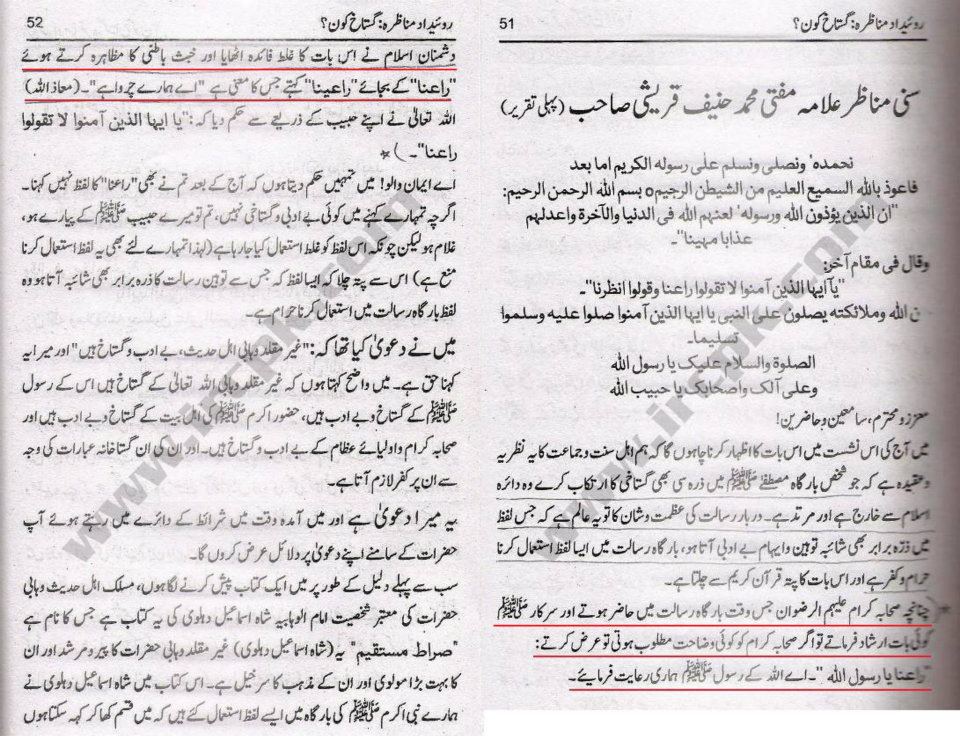 51
روئیداد مناظرہ: گستاخ کون؟
سنی مناظر علامہ مفتی محمد حنیف قریشی صاحب (پہلی تقریر)
نحمدہ' ونصلی ونسلم علی رسوله الکریم اما بعد
فاعوذ بالله السمیع العلیم من الشیطن الرجیم٥ بسم الله الرحمن الرحیم:
"ان الذین یؤذون الله ورسوله' لعنهم الله فی الدنیا والآخرة واعدلهم
عذابا مهینا"۔
وقال فی مقام آخر:
"یآ ایها الذین آمنوا لا تقولوا راعنا وقولوا انظرنا"۔
ن الله وملائکته یصلون علی النبی یا ایها الذین آمنوا صلوا علیه وسلموا
تسلیما۔
الصلوة والسلام علیک یا رسول الله
وعلی آلک واصحابک یا حبیب الله
معزز و محترم، سامعین و حاضرین!
میں آج کی اس نشست میں اس بات کا اظہار کرنا چاہوں گا کہ ہم اہل سنت و جماعت کا یہ نظریہ
وعقیدہ ہے کہ جو شخص بارگاہ مصطفےٰ ﷺ میں ذرہ سی بھی گستاخی کا ارتکاب کرے وہ دائرہ
اسلام سے خارج ہے اور مرتد ہے۔ دربار رسالت کی عظمت وشان کا تو یہ عالم ہے کہ جس لفظ
میں ذرّہ برابر بھی شائبہ توہین و ایہام بے ادبی آتا ہو، بارگاہ رسالت میں ایسا لفظ استعمال کرنا
حرام وکفر ہے اور اس بات کا پتہ قرآن کریم سے چلتا ہے۔
چنانچہ صحابہ کرام علیہم الرضوان جس وقت بارگاہ رسالت میں حاضر ہوتے اور سرکار ﷺ
کوئی بات ارشاد فرماتے تو اگر صحابہ کرام کو کوئی وضاحت مطلوب ہوتی تو عرض کرتے:
"راعنا یا رسول الله"۔ اے اللہ کے رسول ﷺ ہماری رعایت فرمایئے۔
52
روئیداد مناظرہ: گستاخ کون؟
دشمنان اسلام نے اس بات کا غلط فائدہ اٹھایا اور خبث باطنی کا مظاہرہ کرتے ہوئے
"راعنا" کے بجائے "راعینا" کہتے جس کا معنی ہے "اے ہمارے چرواہے"۔ (معاذ اللہ)
اللہ تعالیٰ نے اپنے حبیب کے ذریعے سے حکم دیا کہ: "یا ایها الذین آمنوا لا تقولوا
راعنا"۔
اے ایمان والو! میں تمہیں حکم دیتا ہوں کہ آج کے بعد تم نے بھی "راعنا" کا لفظ نہیں کہنا۔
اگرچہ تمہارے کہنے میں کوئی بے ادبی و گستاخی نہیں، تم تو میرے حبیب ﷺ کے پیارے ہو،
غلام ہو لیکن چونکہ اس لفظ کو غلط استعمال کیا جا رہا ہے (لہٰذا تمہارے لئے بھی یہ لفظ استعمال کرنا
منع ہے) اس سے پتہ چلا کہ ایسا لفظ کہ جس سے توہین رسالت کا ذرہ برابر بھی شائبہ آتا ہو وہ
لفظ بارگاہ رسالت میں استعمال کرنا حرام ہے۔
میں نے دعویٰ کیا تھا کہ: "غیر مقلد وہابی اہل حدیث، بے ادب و گستاخ ہیں" اور میرا یہ
کہنا حق ہے۔ میں واضح کہتا ہوں کہ غیر مقلد وہابی اللہ تعالیٰ کے گستاخ ہیں اس کے رسول
ﷺ کے گستاخ و بے ادب ہیں، حضور اکرم ﷺ کی اہل بیت کے گستاخ و بے ادب ہیں اور
صحابہ کرام و اولیائے عظام کے بے ادب و گستاخ ہیں۔ اور ان کی ان گستاخانہ عبارات کی وجہ
سے ان پر کفر لازم آتا ہے۔
یہ میرا دعویٰ ہے اور میں آمدہ وقت میں شرائط کے دائرے میں رہتے ہوئے آپ
حضرات کے سامنے اپنے دعویٰ پر دلائل عرض کروں گا۔
سب سے پہلے دلیل کے طور پر میں ایک کتاب پیش کرنے لگا ہوں، مسلک اہل حدیث وہابی
حضرات کی معتبر شخصیت امام الوہابیہ شاہ اسماعیل دہلوی کی یہ کتاب ہے جس کا نام ہے
"صراط مستقیم" یہ (شاہ اسماعیل دہلوی) غیر مقلد وہابی حضرات کا پیر و مرشد اور ان
کا بہت بڑا مولوی اور ان کے مذہب کا سرخیل ہے۔ اس کتاب میں شاہ اسماعیل دہلوی نے
ہمارے نبی اکرم ﷺ کی بارگاہ میں ایسے لفظ استعمال کئے ہیں کہ میں قسم کھا کر کہہ سکتا ہوں